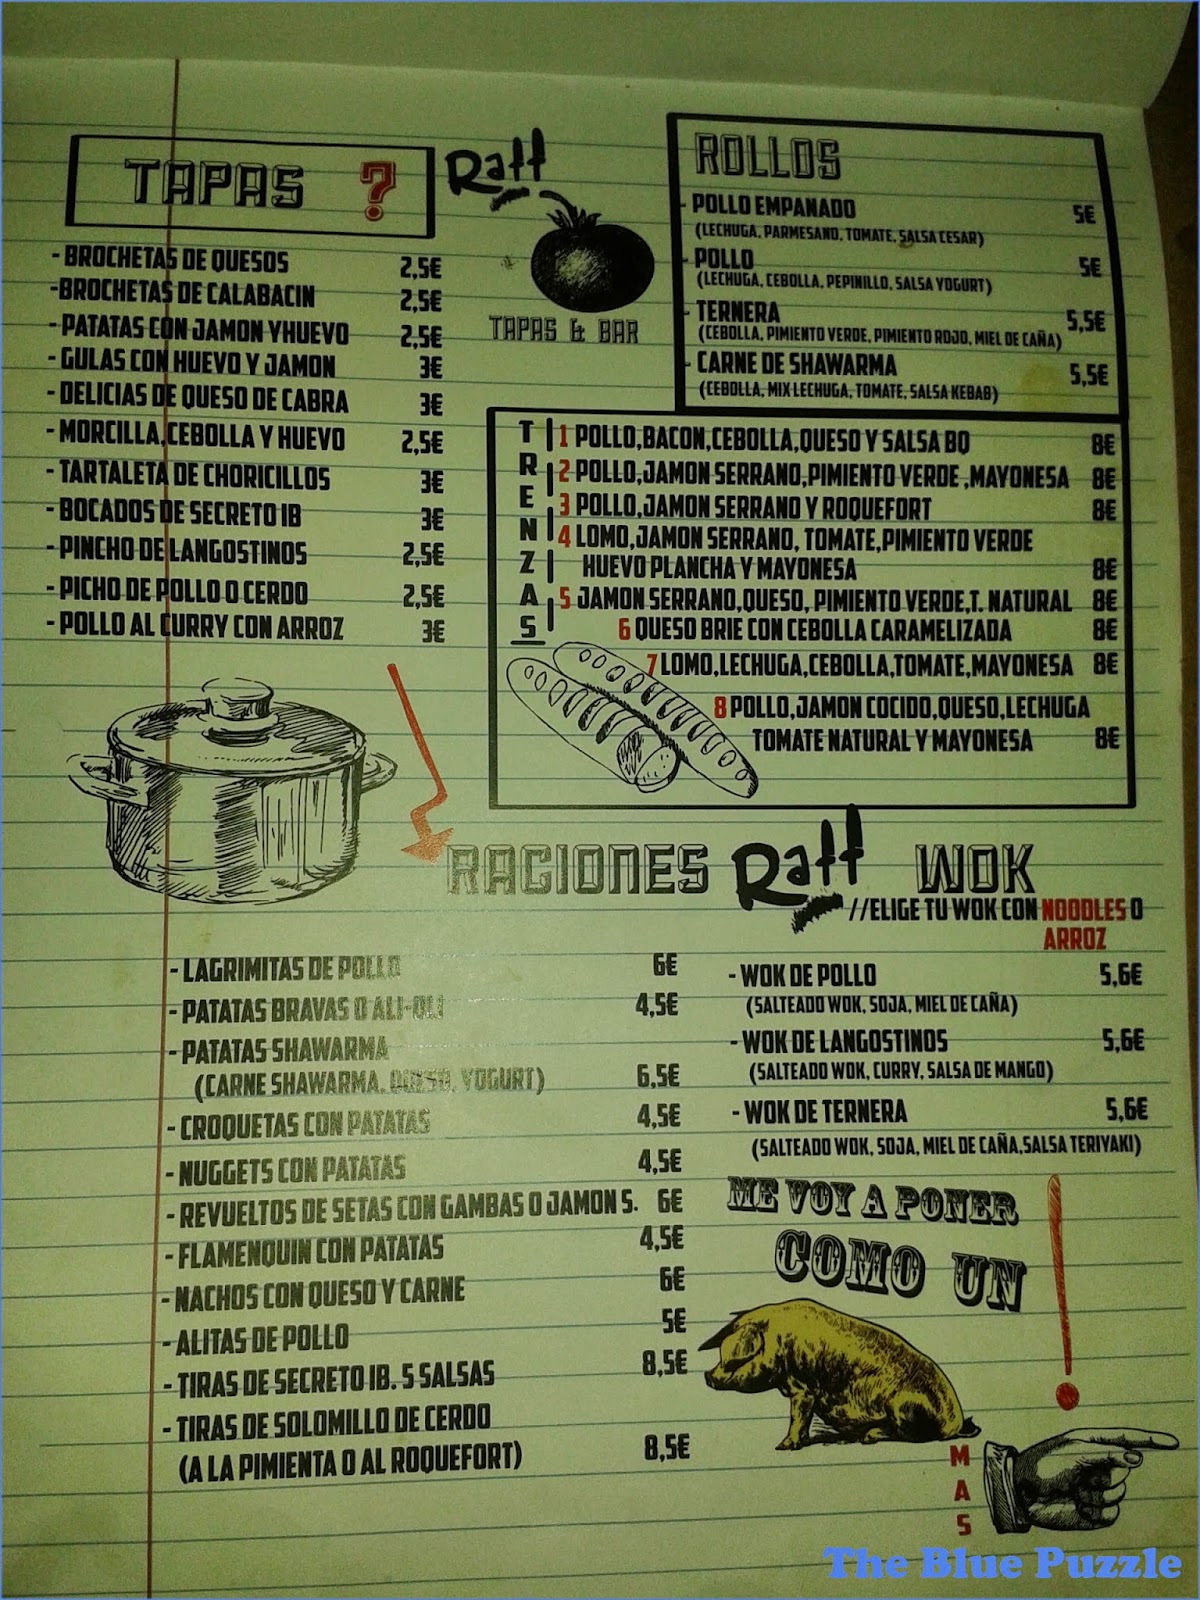 TAPAS ?
- BROCHETAS DE QUESOS 2,5€
-BROCHETAS DE CALABACIN 2,5€
- PATATAS CON JAMON YHUEVO 2,5€
- GULAS CON HUEVO Y JAMON 3€
- DELICIAS DE QUESO DE CABRA 3€
- MORCILLA,CEBOLLA Y HUEVO 2,5€
- TARTALETA DE CHORICILLOS 3€
- BOCADOS DE SECRETO IB 3€
- PINCHO DE LANGOSTINOS 2,5€
- PICHO DE POLLO O CERDO 2,5€
- POLLO AL CURRY CON ARROZ 3€
Raff
TAPAS & BAR
ROLLOS
- POLLO EMPANADO 5€
(LECHUGA, PARMESANO, TOMATE, SALSA CESAR)
- POLLO 5€
(LECHUGA, CEBOLLA, PEPINILLO, SALSA YOGURT)
- TERNERA 5,5€
(CEBOLLA, PIMIENTO VERDE, PIMIENTO ROJO, MIEL DE CAÑA)
- CARNE DE SHAWARMA 5,5€
(CEBOLLA, MIX LECHUGA, TOMATE, SALSA KEBAB)
TRENZAS
1 POLLO,BACON,CEBOLLA,QUESO Y SALSA BQ 8€
2 POLLO,JAMON SERRANO,PIMIENTO VERDE ,MAYONESA 8€
3 POLLO,JAMON SERRANO Y ROQUEFORT 8€
4 LOMO,JAMON SERRANO, TOMATE,PIMIENTO VERDE
HUEVO PLANCHA Y MAYONESA 8€
5 JAMON SERRANO,QUESO, PIMIENTO VERDE,T. NATURAL 8€
6 QUESO BRIE CON CEBOLLA CARAMELIZADA 8€
7 LOMO,LECHUGA,CEBOLLA,TOMATE,MAYONESA 8€
8 POLLO,JAMON COCIDO,QUESO,LECHUGA
TOMATE NATURAL Y MAYONESA 8€
RACIONES Raff
- LAGRIMITAS DE POLLO 6€
- PATATAS BRAVAS O ALI-OLI 4,5€
- PATATAS SHAWARMA
(CARNE SHAWARMA, QUESO, YOGURT) 6,5€
- CROQUETAS CON PATATAS 4,5€
- NUGGETS CON PATATAS 4,5€
- REVUELTOS DE SETAS CON GAMBAS O JAMON S. 6€
- FLAMENQUIN CON PATATAS 4,5€
- NACHOS CON QUESO Y CARNE 6€
- ALITAS DE POLLO 5€
- TIRAS DE SECRETO IB. 5 SALSAS 8,5€
- TIRAS DE SOLOMILLO DE CERDO
(A LA PIMIENTA O AL ROQUEFORT) 8,5€
WOK
//ELIGE TU WOK CON NOODLES O
ARROZ
- WOK DE POLLO 5,6€
(SALTEADO WOK, SOJA, MIEL DE CAÑA)
- WOK DE LANGOSTINOS 5,6€
(SALTEADO WOK, CURRY, SALSA DE MANGO)
- WOK DE TERNERA 5,6€
(SALTEADO WOK, SOJA, MIEL DE CAÑA,SALSA TERIYAKI)
ME VOY A PONER
COMO UN !
MAS
The Blue Puzzle